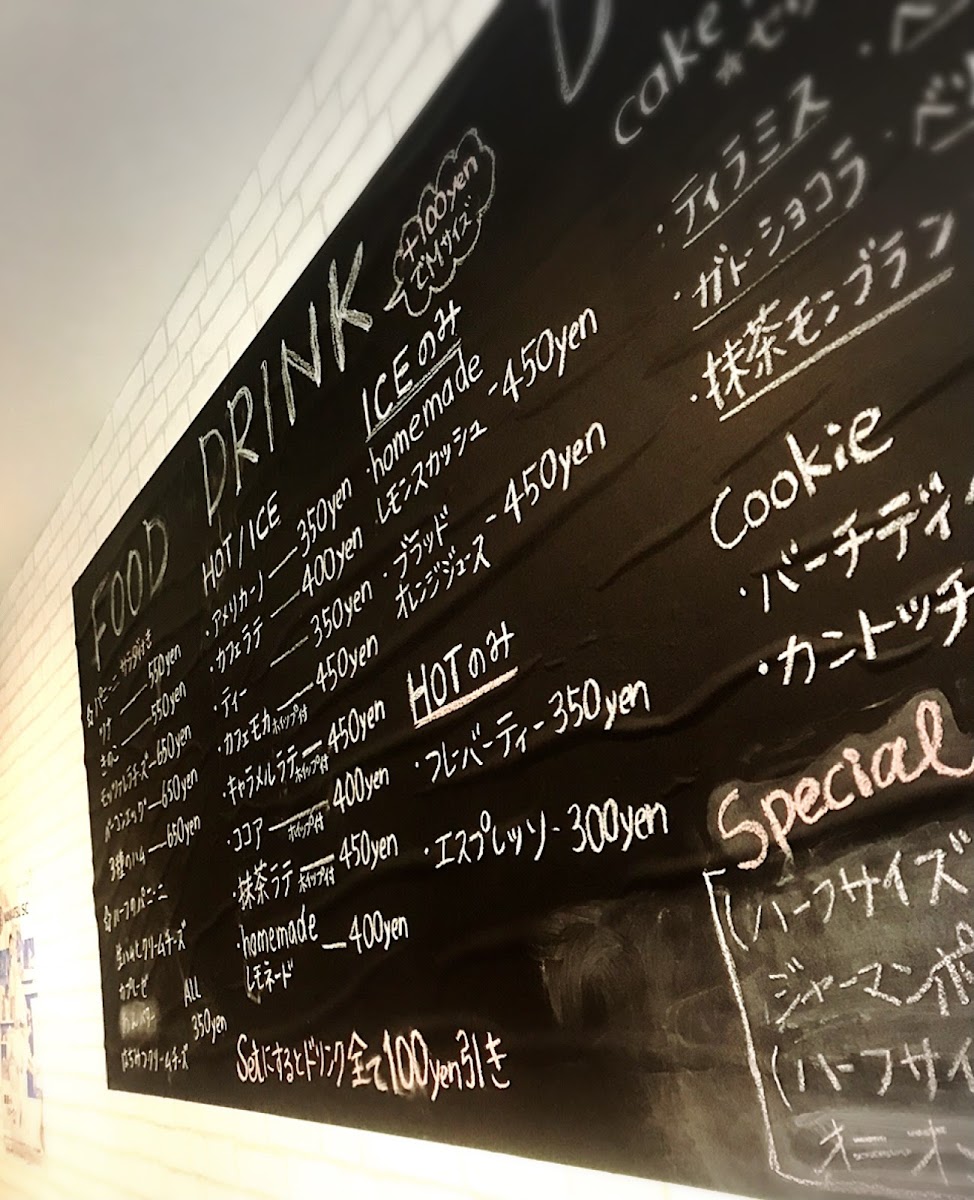 FOOD
☆パニーニ サラダ付き
ツナ — 550yen
きのこ — 550yen
モッツァレラチーズ — 650yen
ベーコンエッグ — 650yen
3種のハム — 650yen
☆ハーフパニーニ
生ハムとクリームチーズ
カプレーゼ
はちみつクリームチーズ
All
350yen
DRINK
+100yen
でMサイズ
HOT/ICE
・アメリカーノ — 350yen
・カフェラテ — 400yen
・ティー — 350yen
・カフェモカ ホイップ付 — 450yen
・キャラメルラテ ホイップ付 — 450yen
・ココア ホイップ付 — 400yen
・抹茶ラテ ホイップ付 — 450yen
・homemade
レモネード — 400yen
ICEのみ
・homemade
レモンスカッシュ - 450yen
・ブラッド
オレンジジュース - 450yen
HOTのみ
・フレーバーティー - 350yen
・エスプレッソ - 300yen
Setにするとドリンク全て100yen引き
cake
・ティラミス
・ガトーショコラ
・抹茶モンブラン
Cookie
・バーチディ
・カントッチ
Special
(ハーフサイズ
ジャーマンポ
(ハーフサイ
オニオ